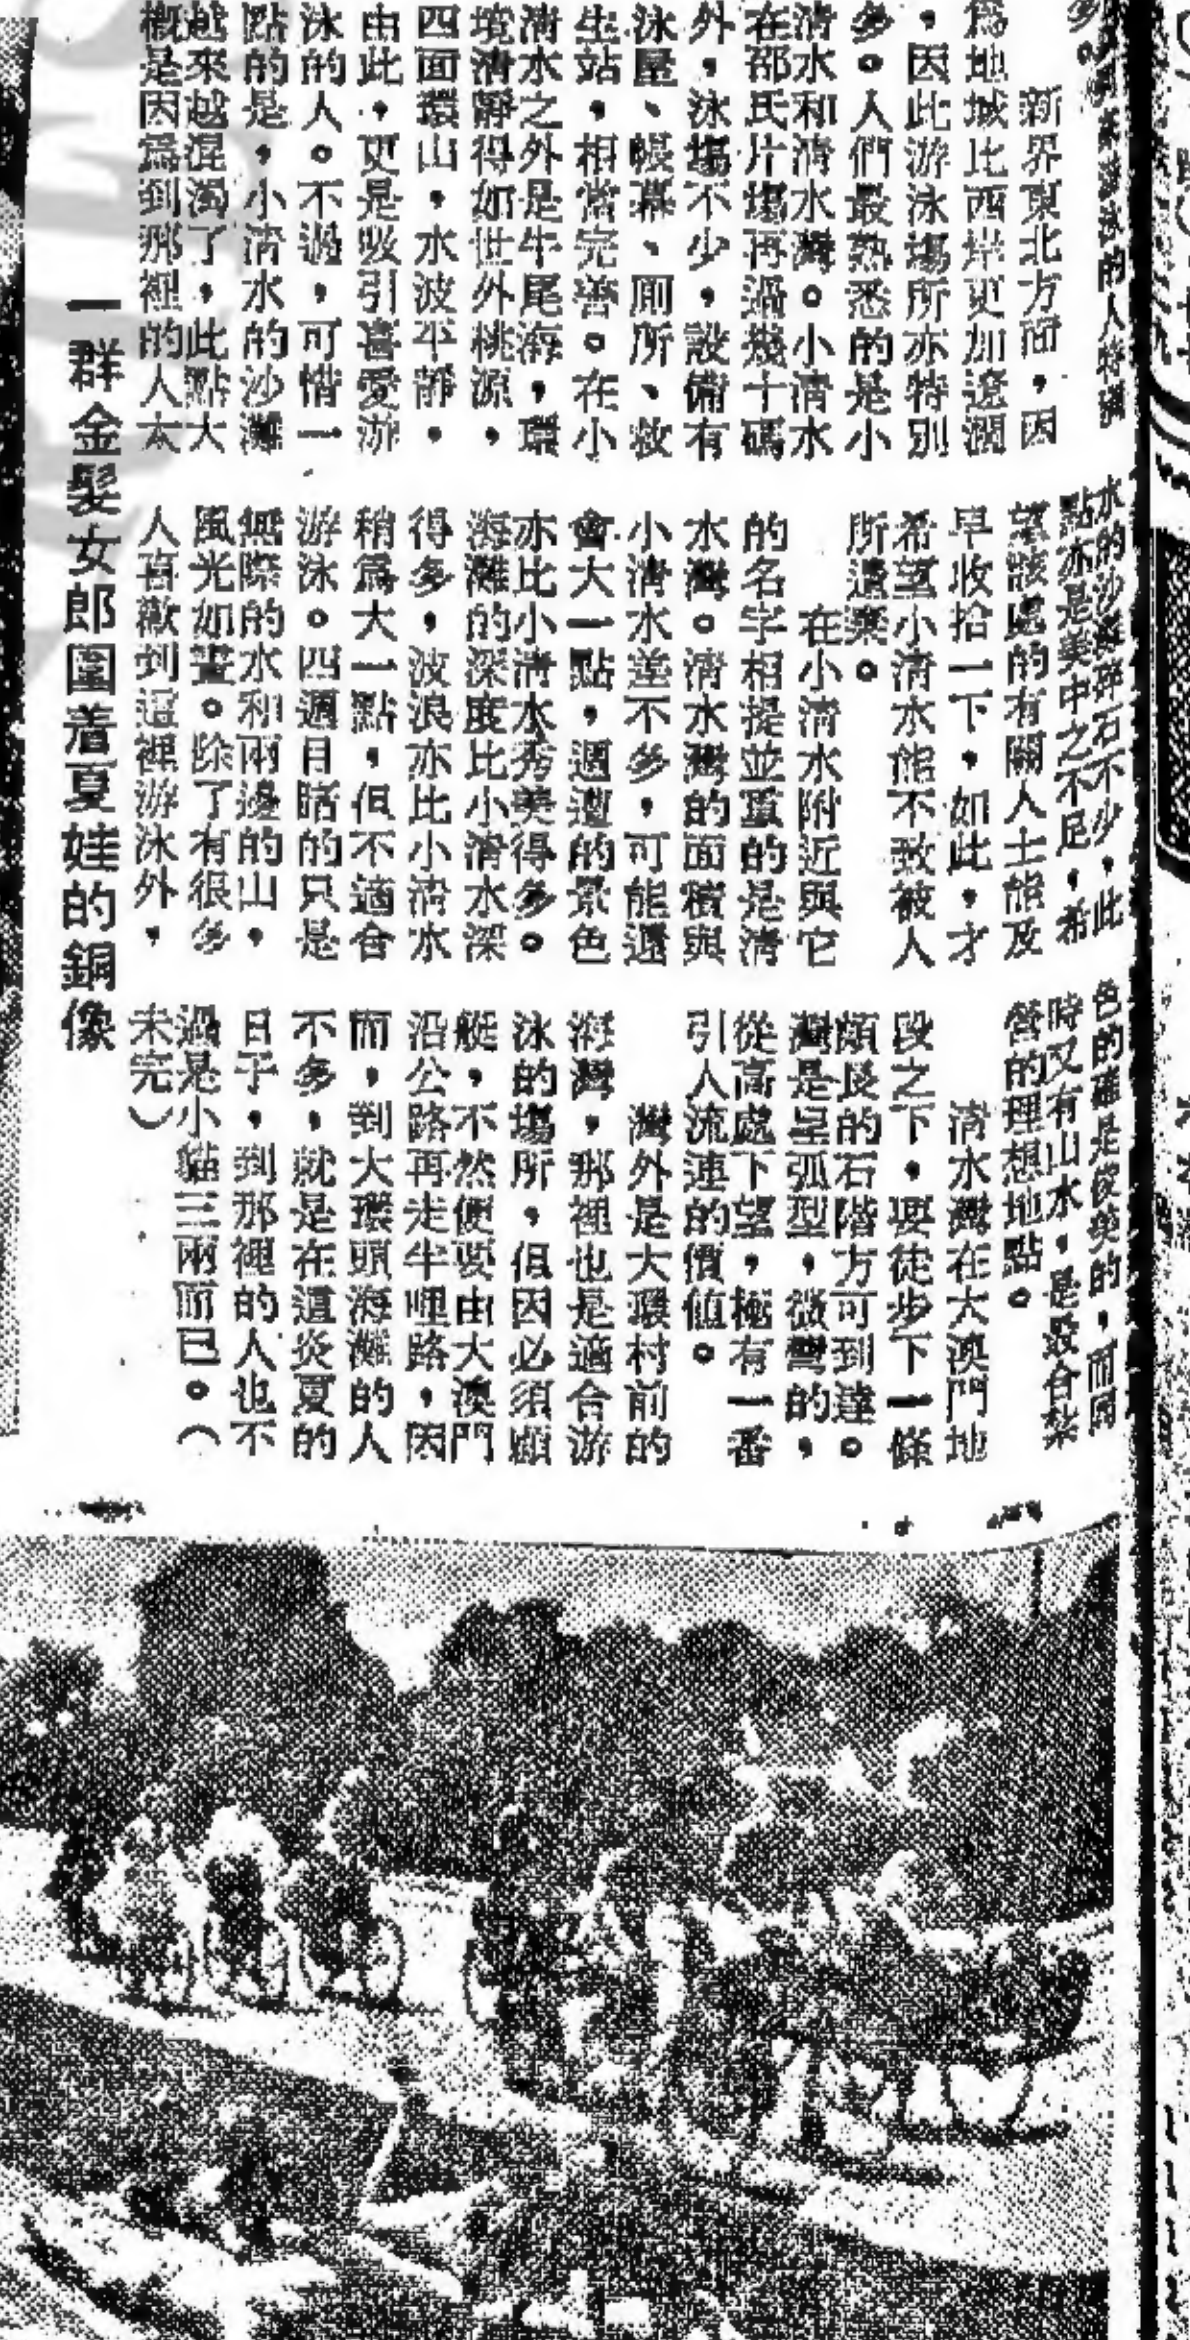 多。
新界東北方面，因
為地域比西岸更加遼濶
，因此游泳場所亦特別
多。人們最熟悉的是小
清水和清水灣。小清水
在邵氏片場再過幾十碼
外，泳場不少，設備有
泳屋、帳幕、厠所、救
生站，相當完善。在小
清水之外是牛尾海，環
境清靜得如世外桃源，
四面環山，水波平靜，
由此，更是吸引喜愛游
泳的人。不過，可惜一
點的是，小清水的沙灘
越來越混濁了，此點大
概是因為到那裡的人太
水的沙灘碎石不少，此
點亦是美中之不足，希
望該處的有關人士能及
早收拾一下，如此，才
希望小清水能不致被人
所遺棄。
在小清水附近與它
的名字相提並重的是清
水灣。清水灣的面積與
小清水差不多，可能還
會大一點，週遭的景色
亦比小清水秀美得多。
海灘的深度比小清水深
得多，波浪亦比小清水
稍為大一點，但不適合
游泳。四週目睹的只是
無際的水和兩邊的山，
風光如畫。除了有很多
人喜歡到這裡游泳外，
色的確是俊美的，而同
時又有山水，是最合紮
營的理想地點。
清水灣在大澳門地
段之下，要徒步下一條
頗長的石階方可到達。
灣是呈弧型，微彎的，
從高處下望，極有一番
引人流連的價值。
灣外是大環村前的
海灣，那裡也是適合游
泳的場所，但因必須顧
艇，不然便要由大澳門
沿公路再走半哩路，因
而，到大環頭海灘的人
不多，就是在這炎夏的
日子，到那裡的人也不
過是小貓三兩而已。（
未完）
一群金髮女郎圍着夏娃的銅像